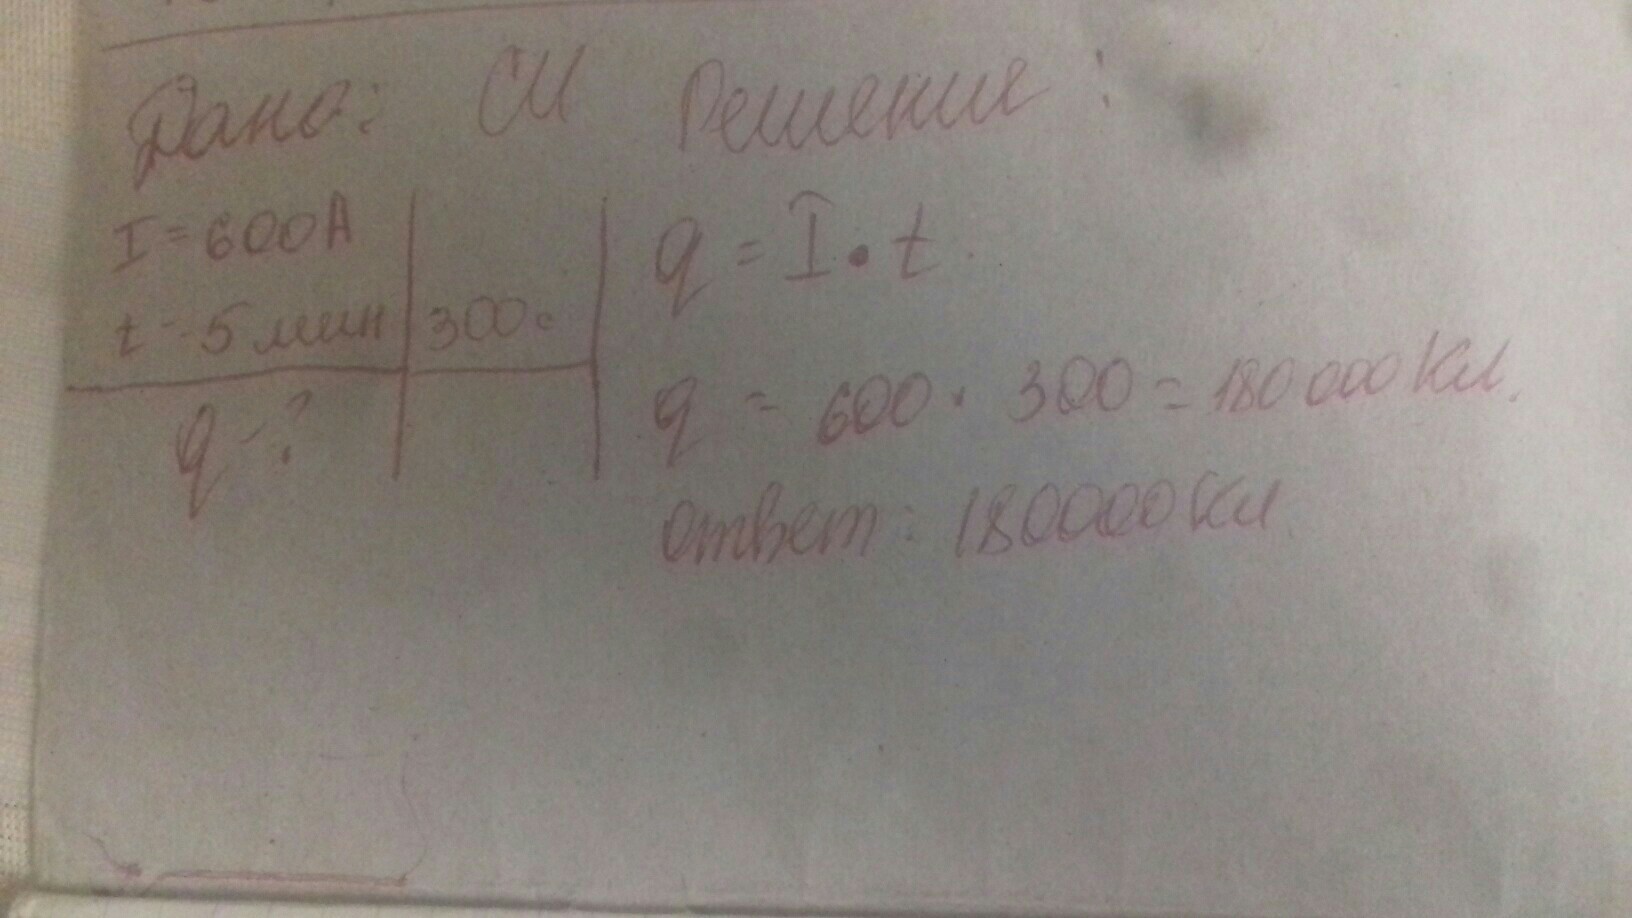 Дано: СИ Решение:
I = 600А
t - 5 мин 300с
q - ?
q = I • t.
q = 600 · 300 = 180 000 Кл.
ответ: 180000 Кл